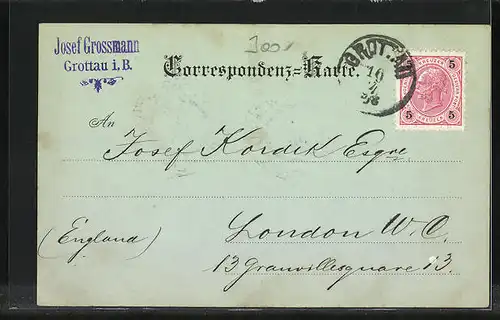 Josef Grossmann
Grottau i. B.
Correspondenz=Karte.
5 5
5 5
An
Josef Kordik Esqre
(England)
London W. C.
13 Granvillesquare 13.